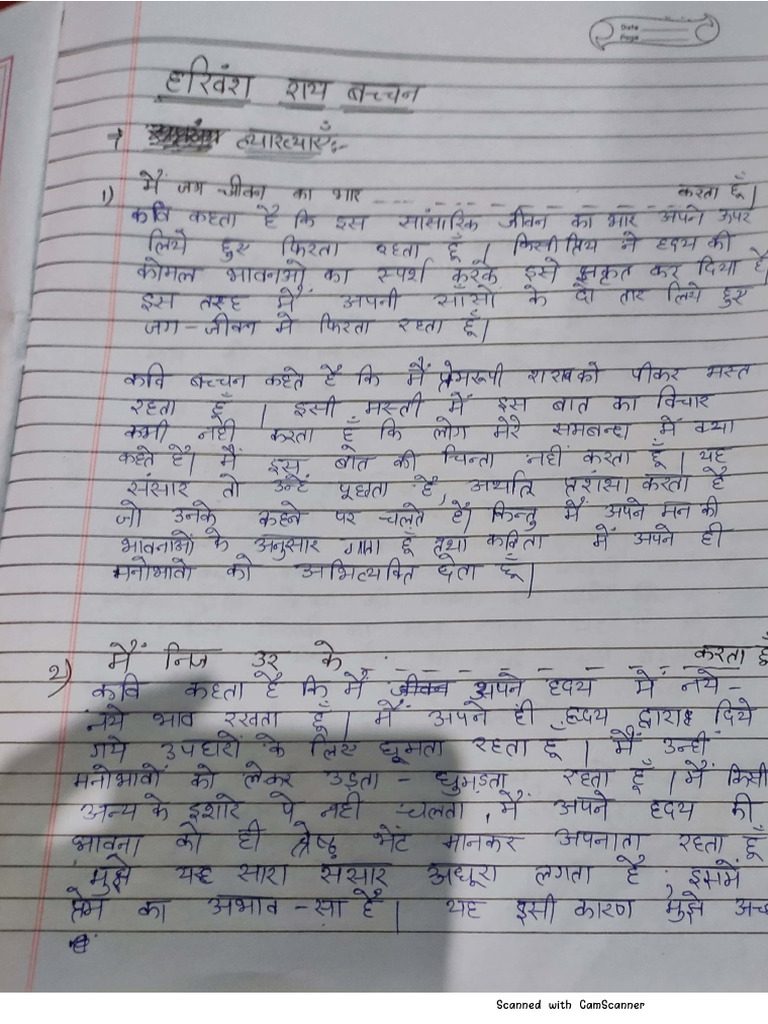 Date
Page
हरिवंश राय बच्चन
→ व्याख्याएँ:-
1) मैं जग-जीवन का भार _ _ _ _ _ _ _ _ _ _ _ करता हूँ।
कवि कहता है कि इस सांसारिक जीवन का भार अपने ऊपर
लिये हुए फिरता रहता हूँ। किसी प्रिय ने हृदय की
कोमल भावनओ का स्पर्श करके इसे झकृत कर दिया है
इस तरह मैं अपनी साँसों के दो तार लिये हुए
जग-जीवन मे फिरता रहता हूँ।
कवि बच्चन कहते हैं कि मैं प्रेमरूपी शराब को पीकर मस्त
रहता हूँ। इसी मस्ती में इस बात का विचार
कभी नही करता हूँ कि लोग मेरे समबन्ध में क्या
कहते हैं। मैं इस बात की चिन्ता नहीं करता हूँ। यह
संसार तो उन्हें पूछता है, अर्थात् प्रशंसा करता है
जो उनके कहने पर चलते हैं। किन्तु मैं अपने मन की
भावनाओं के अनुसार गाता हूँ तथा कविता में अपने ही
मनोभावो को अभिव्यक्ति देता हूँ।
2) मैं निज उर के _ _ _ _ _ _ _ _ _ _ करता हूँ
कवि कहता है कि मैं अपने हृदय में नये-
नये भाव रखता हूँ। मैं अपने ही हृदय द्वारा दिये
गये उपहारों के लिए घूमता रहता हूँ। मैं उन्ही
मनोभावों को लेकर उड़ता-घुमड़ता रहता हूँ। मैं किसी
अन्य के इशारे पे नही चलता, मैं अपने हृदय की
भावना को ही श्रेष्ठ भेंट मानकर अपनाता रहता हूँ
मुझे यह सारा संसार अधूरा लगता है, इसमें
प्रेम का अभाव-सा है। यह इसी कारण मुझे
Scanned with CamScanner